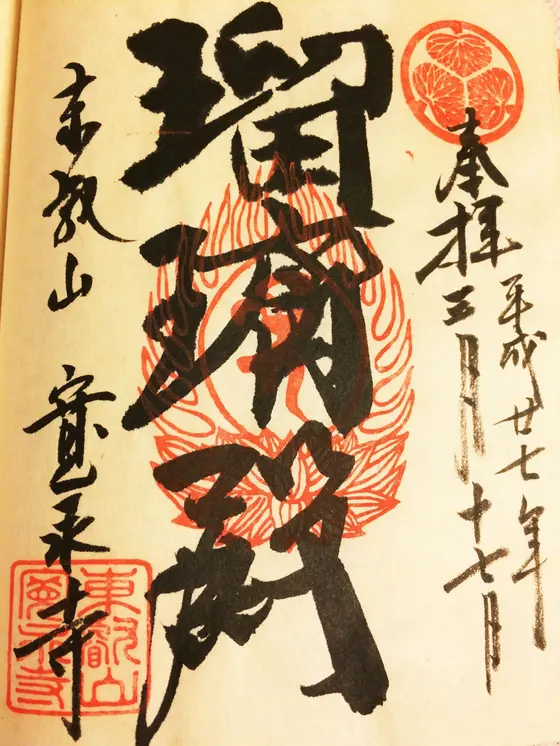 奉拝
平成廿七年
五月十七日
瑠璃殿
東叡山 寛永寺
東叡山
寛永寺